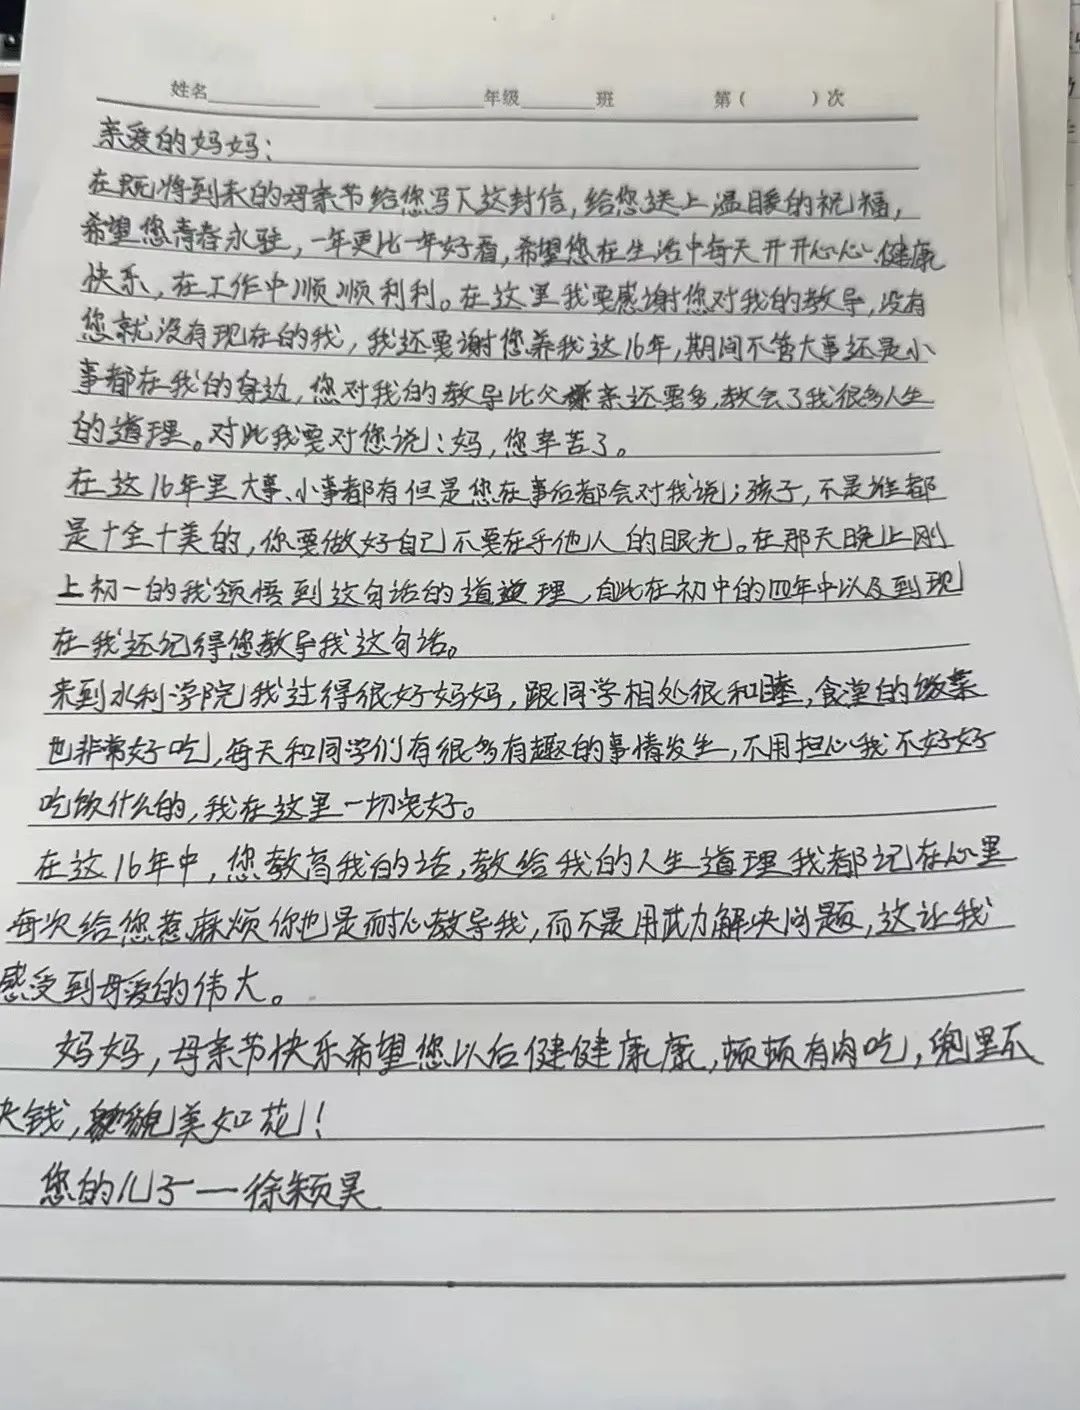 姓名 年级 班 第( )次
亲爱的妈妈：
在既将到来的母亲节给您写下这封信，给您送上温暖的祝福，
希望您青春永驻，一年更比一年好看，希望您在生活中每天开开心心、健康
快乐，在工作中顺顺利利。在这里我要感谢您对我的教导，没有
您就没有现在的我，我还要谢您养我这16年，期间不管大事还是小
事都在我的身边，您对我的教导比父亲还要多，教会了我很多人生
的道理。对此我要对您说：妈，您辛苦了。
在这16年里大事、小事都有但是您在事后都会对我说；孩子，不是谁都
是十全十美的，你要做好自己不要在乎他人的眼光。在那天晚上刚
上初一的我领悟到这句话的道理，自此在初中的四年中以及到现
在我还记得您教导我这句话。
来到水利学院我过得很好妈妈，跟同学相处很和睦，食堂的饭菜
也非常好吃，每天和同学们有很多有趣的事情发生，不用担心我不好好
吃饭什么的，我在这里一切完好。
在这16年中，您教育我的话，教给我的人生道理我都记在心里
每次给您惹麻烦你也是耐心教导我，而不是用武力解决问题，这让我
感受到母爱的伟大。
妈妈，母亲节快乐希望您以后健健康康，顿顿有肉吃，兜里不
欠钱，貌美如花！
您的儿子——徐颖昊